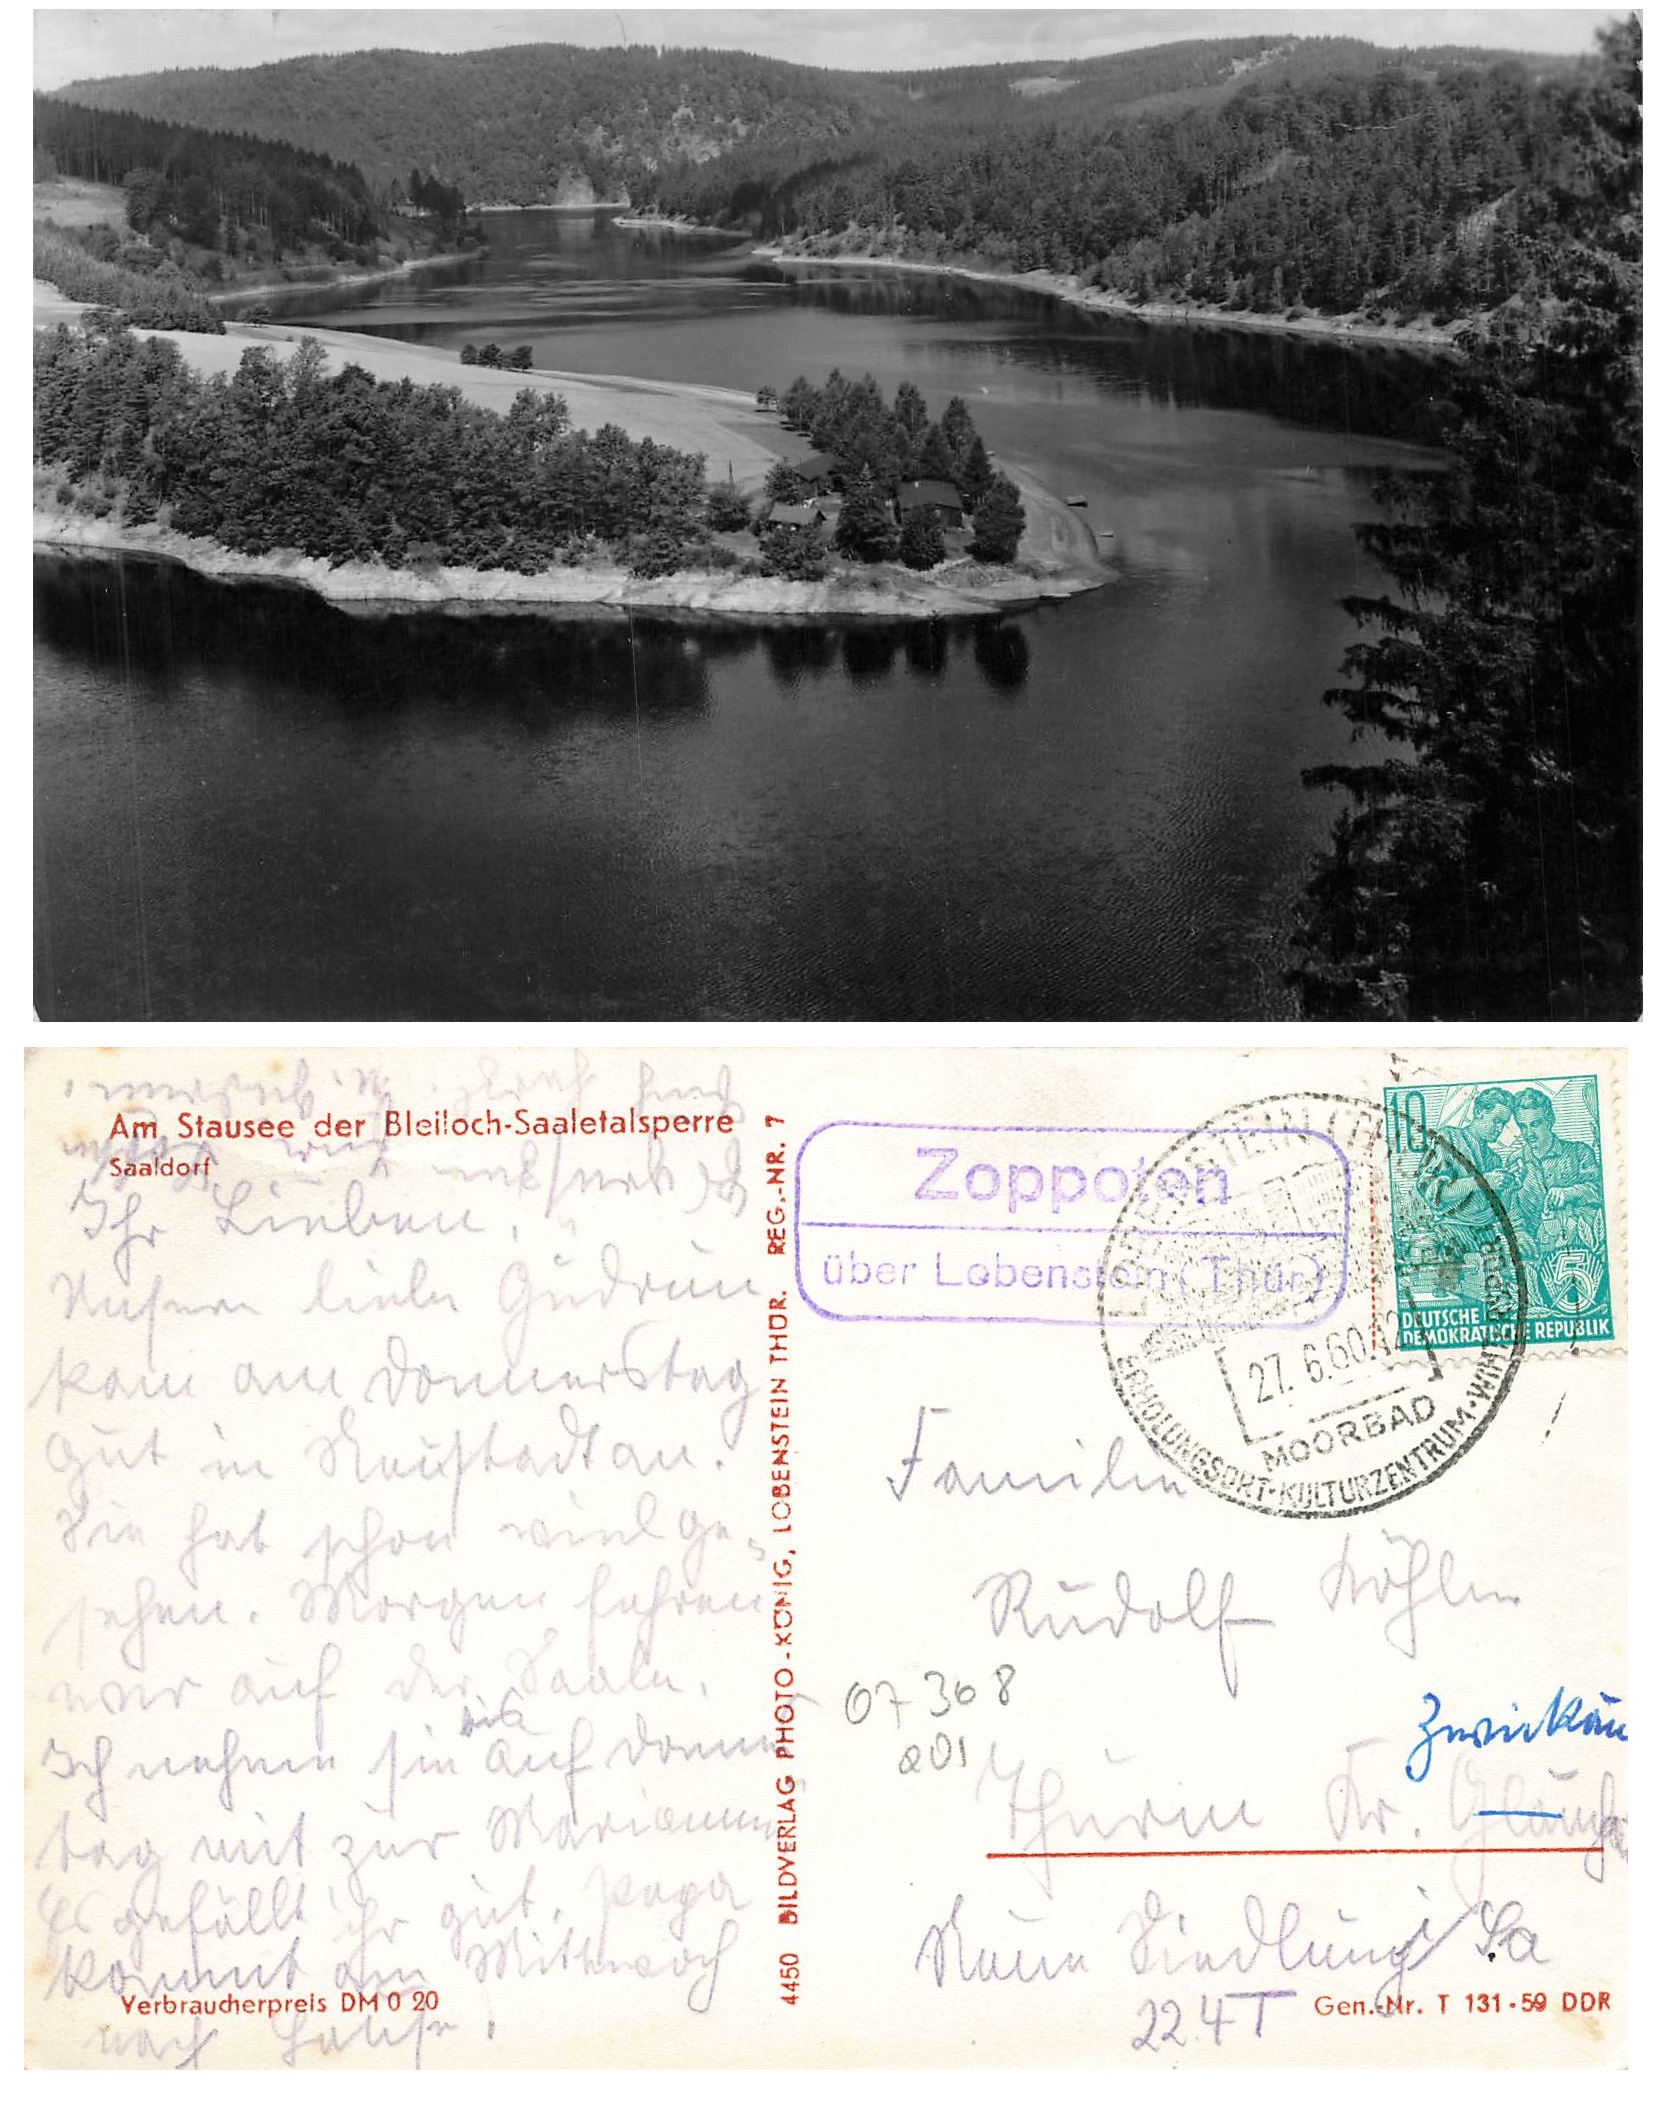 Am Stausee der Bleiloch-Saaletalsperre
Saaldorf
Ihr Lieben,
Unsere liebe Gudrun
kam am Donnerstag
gut in Neustadt an.
Sie hat schon viel ge-
sehen. Morgen fahren
wir auf der Saale.
Ich nehme sie bis auf Donners
tag mit zur Marianne
Es gefällt ihr gut. Papa
kommt am Mittwoch
nach Hause.
Verbraucherpreis DM 0 20
4450 BILDVERLAG PHOTO-KÖNIG, LOBENSTEIN THÜR. REG.-NR. 7
Zoppoten
über Lobenstein (Thür)
LOBENSTEIN (THÜR)
27.6.60.12
MOORBAD
ERHOLUNGSORT·KULTURZENTRUM·WINTERSPORT
10
5
DEUTSCHE
DEMOKRATISCHE REPUBLIK
Familie
Rudolf Köhler
07 368
201
Zwickau
Thurm Kr. Glaucha
Neue Siedlung Sa
224T
Gen.-Nr. T 131·59 DDR